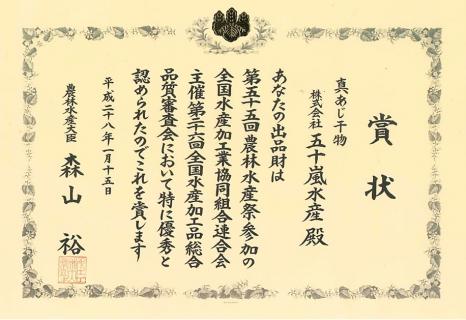 賞状
真あじ干物
株式会社 五十嵐水産 殿
あなたの出品財は
第五十五回農林水産祭参加の
全国水産加工業協同組合連合会
主催第二十六回全国水産加工品総合
品質審査会において特に優秀と
認められたのでこれを賞します
平成二十八年一月十五日
農林水産大臣 森山 裕